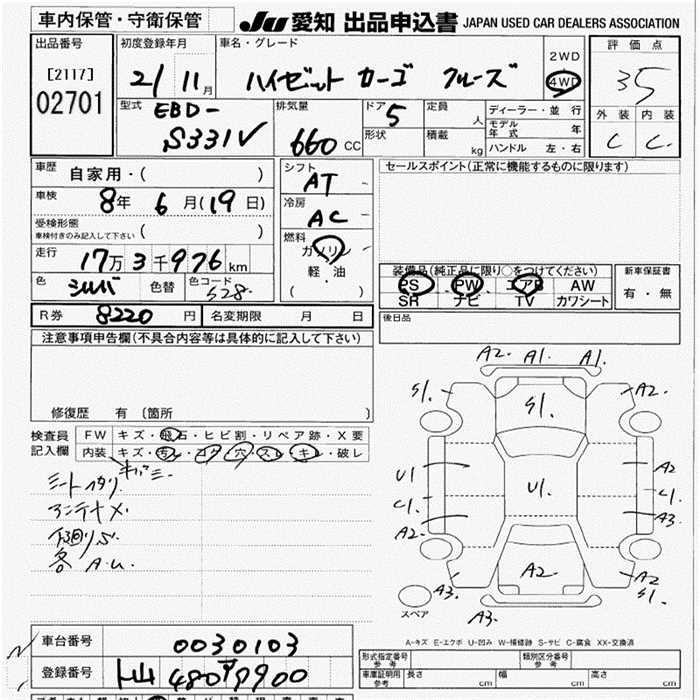 車内保管・守衛保管
JU 愛知 出品申込書 JAPAN USED CAR DEALERS ASSOCIATION
出品番号
[2117]
02701
初度登録年月
21 11月
車名・グレード
ハイゼット カーゴ クルーズ
2WD
4WD
評価点
3.5
外装 内装
C C
型式
EBD-
S331V
排気量
660 CC
ドア 5
形状
定員 人
積載 kg
ディーラー・並行
モデル年式 年
ハンドル 左・右
車歴
自家用・( )
車検
8年 6月(19日)
受検形態
車検付きのみ記入して下さい ( )
走行
17万3千976km
色
シルバ
色替
色コード
S28
シフト
AT
冷房
AC
燃料
ガソリン
軽・油
( )
セールスポイント(正常に機能するものに限ります)
装備品(純正品に限り○をつけてください)
PS PW エアB AW
SR ナビ TV カワシート
新車保証書
有・無
後日品
R券 8220円
名変期限 月 日
注意事項申告欄(不具合内容等は具体的に記入して下さい)
修復歴 有〔箇所 〕
検査員記入欄
FW キズ・飛石・ヒビ割・リペア跡・X要
内装 キズ・汚レ・コゲ・穴・スレ・キレ・破レ
シートヘタリ
アンテナX
下廻りS
各 A.U.
A2. A1. A1.
S1. S1. A2.
U1 U1. A2
C1. C1.
A2. A3
A3. A2. A2
S1.
A3.
スペア
A-キズ E-エクボ U-凹み W-補修跡 S-サビ C-腐食 XX-交換済
車台番号
0030103
登録番号
形式指定番号 参考
類別区分番号
車庫証明用 参考
長さ cm
幅 cm
高さ cm